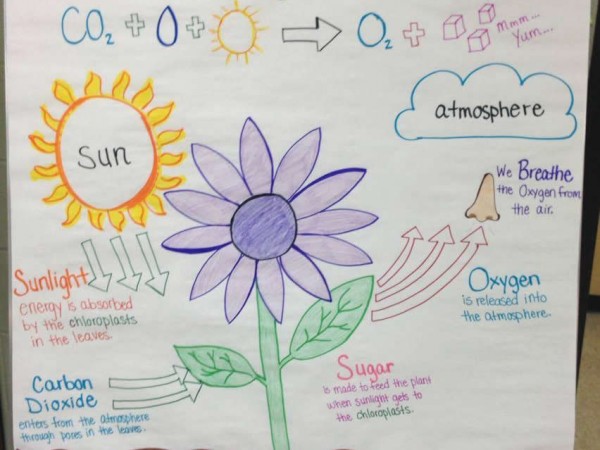 CO₂ + + → O₂ + mmm...
Yum....
sun
atmosphere
We Breathe
the Oxygen from
the air.
Sunlight
energy is absorbed
by the chloroplasts
in the leaves.
Oxygen
is released into
the atmosphere.
Carbon
Dioxide
enters from the atmosphere
through pores in the leaves.
Sugar
is made to feed the plant
when sunlight gets to
the chloroplasts.